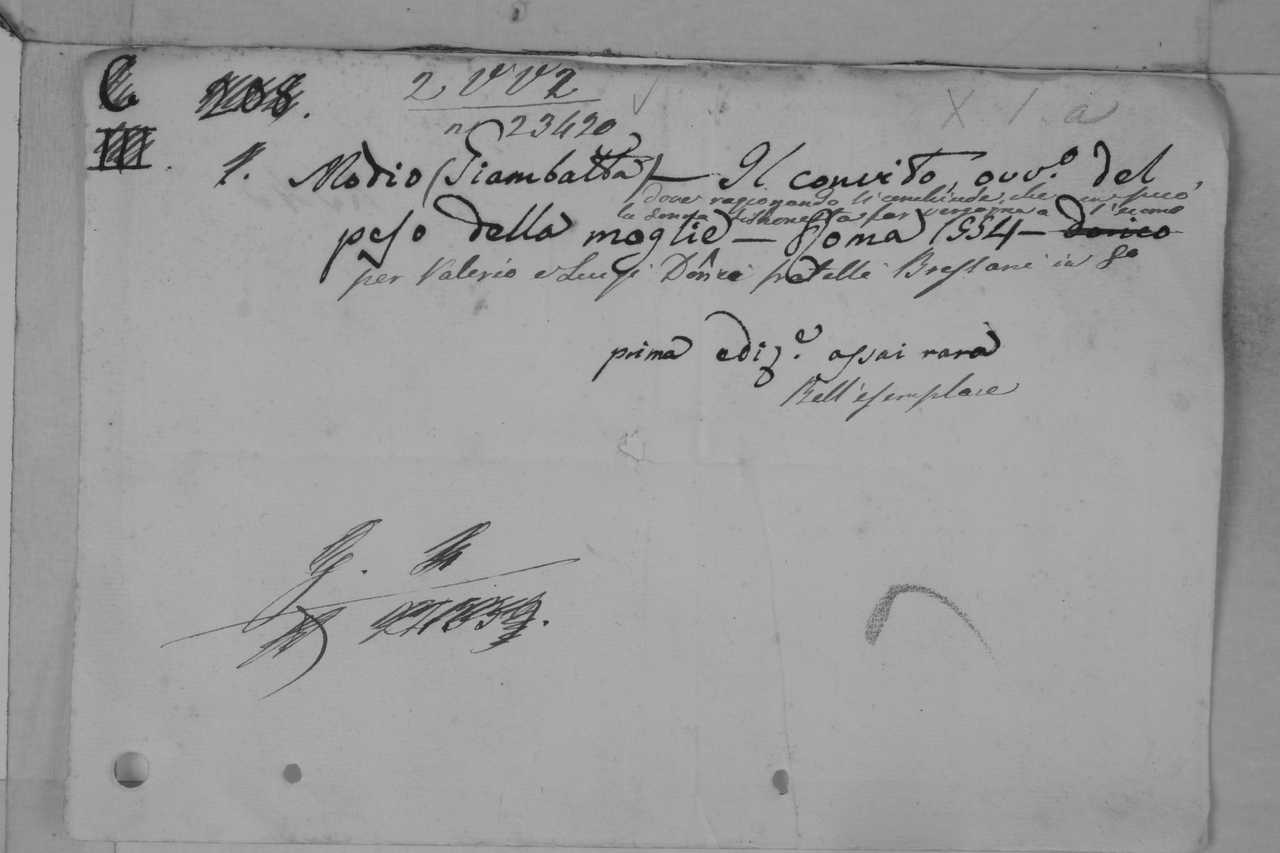 C 208. 2 VV2 X 1. a
n 23420
III. 1. Modio (Giambatta) — Il convito, ovv.o del
dove ragionando si conchiude, che non può
la donna dishonesta far vergogna a l'uomo
peso della moglie — Roma 1554 — dorico
per Valerio e Luigi Dorici fratelli Bressani in 8o
prima ediz.e assai rara
Bell'esemplare